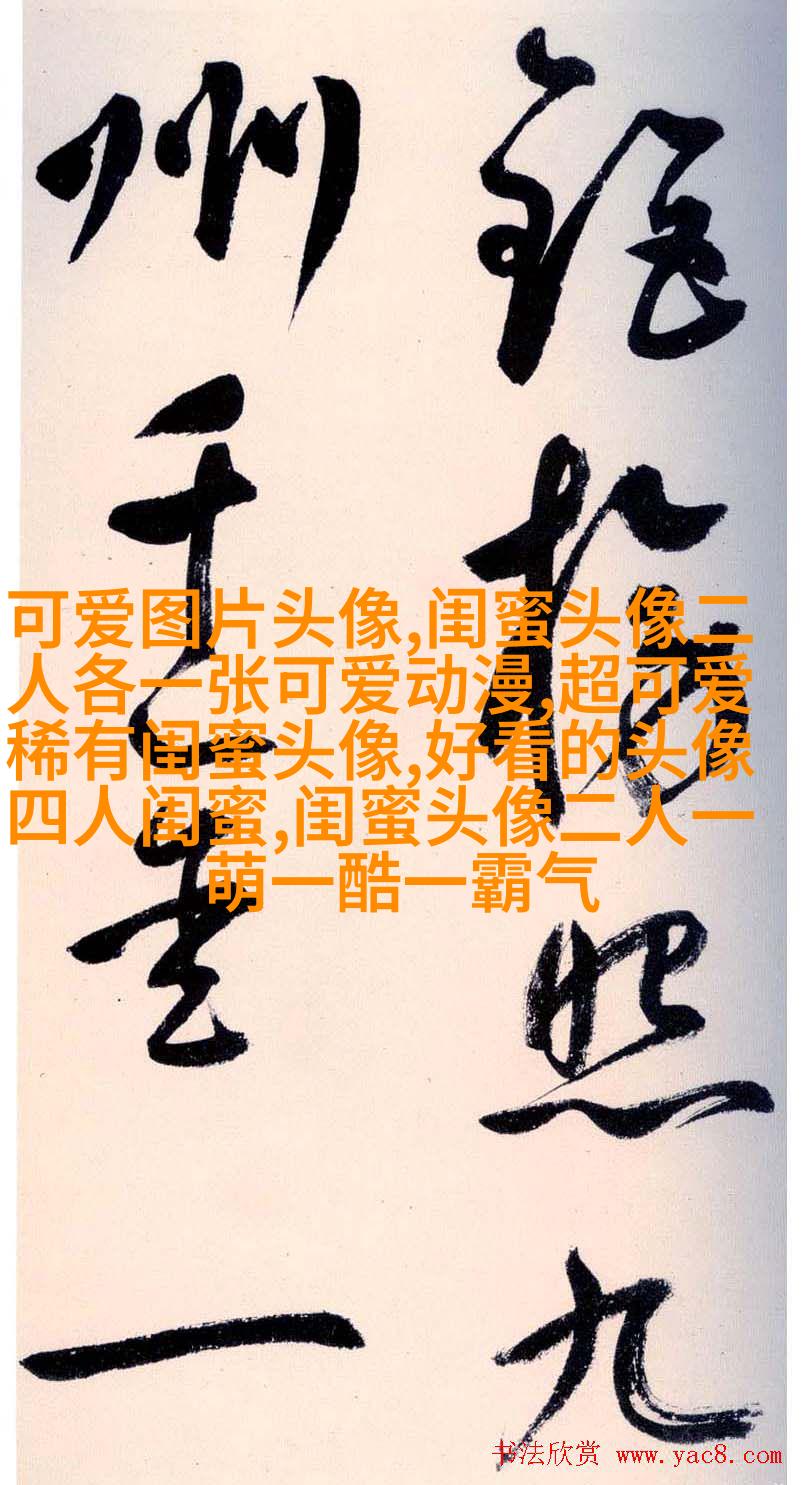 照九
州千里一
可爱图片头像,闺蜜头像二
人各一张可爱动漫,超可爱
稀有闺蜜头像,好看的头像
四人闺蜜,闺蜜头像二人一
萌一酷一霸气
书法欣赏 www.yac8.com